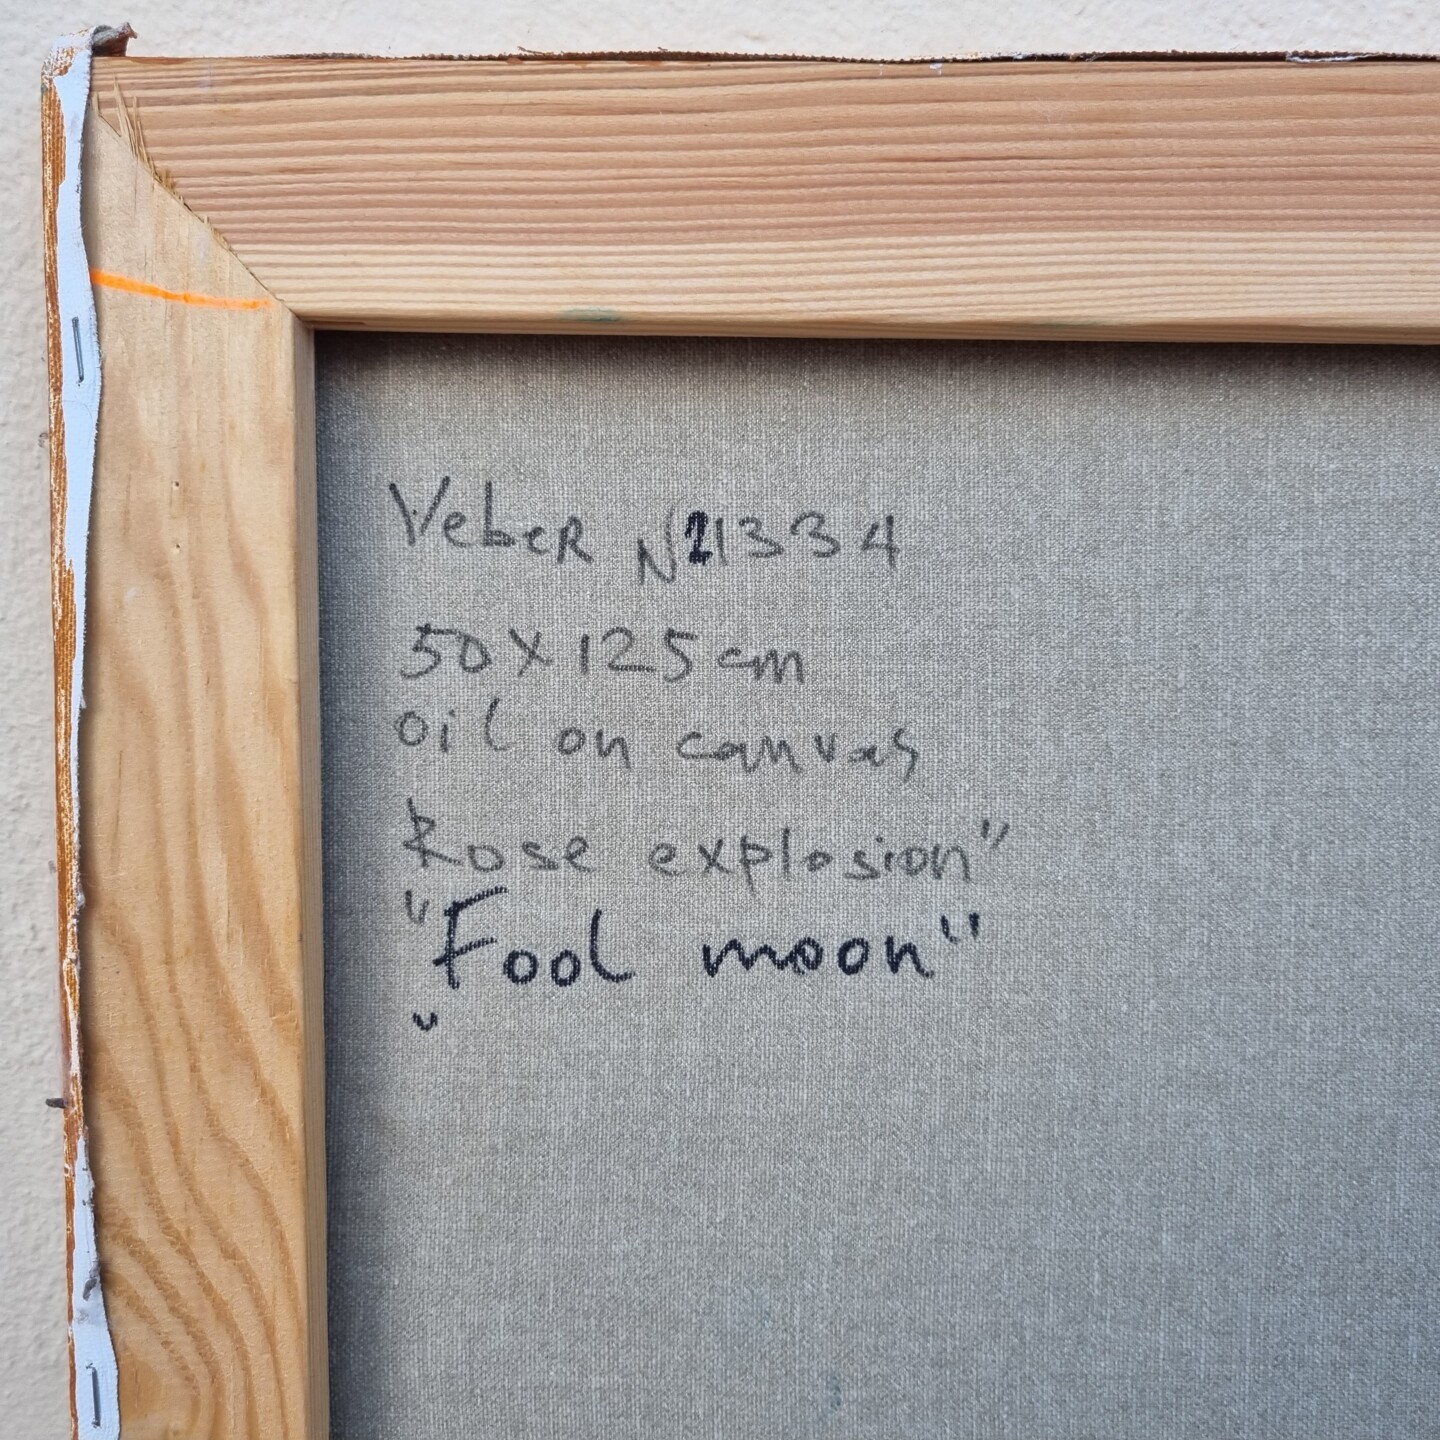 Veber N21334
50x125cm
oil on canvas
Rose explosion"
"Fool moon"
"